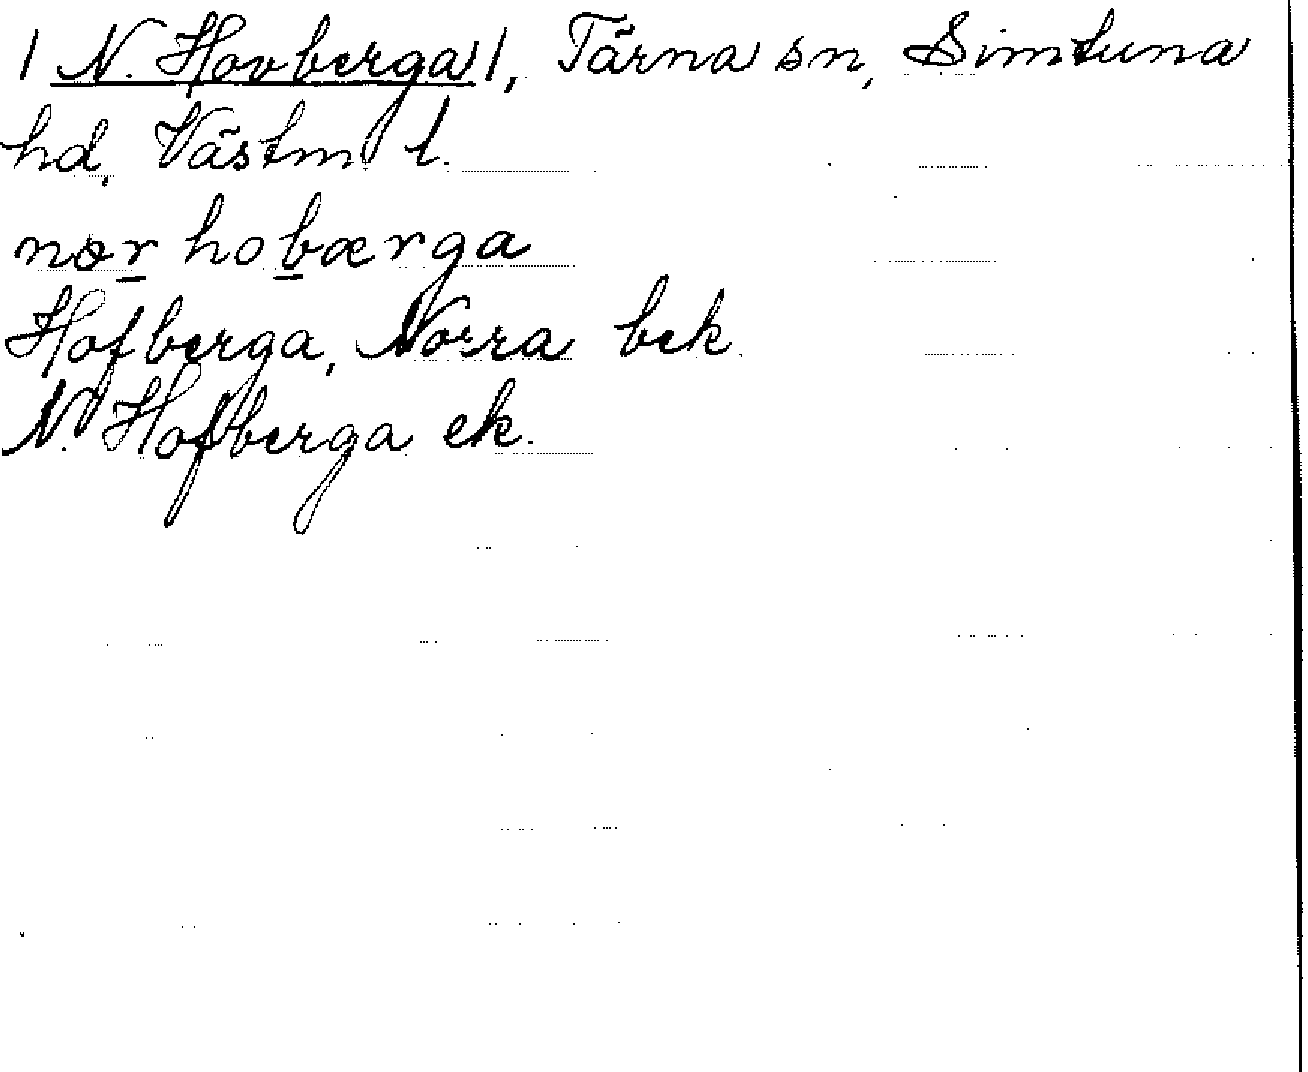 | N. Hovberga |, Tärna sn, Simtuna
hd, Västm l.
nør hobærga
Hofberga, Norra bek
N. Hofberga ek.